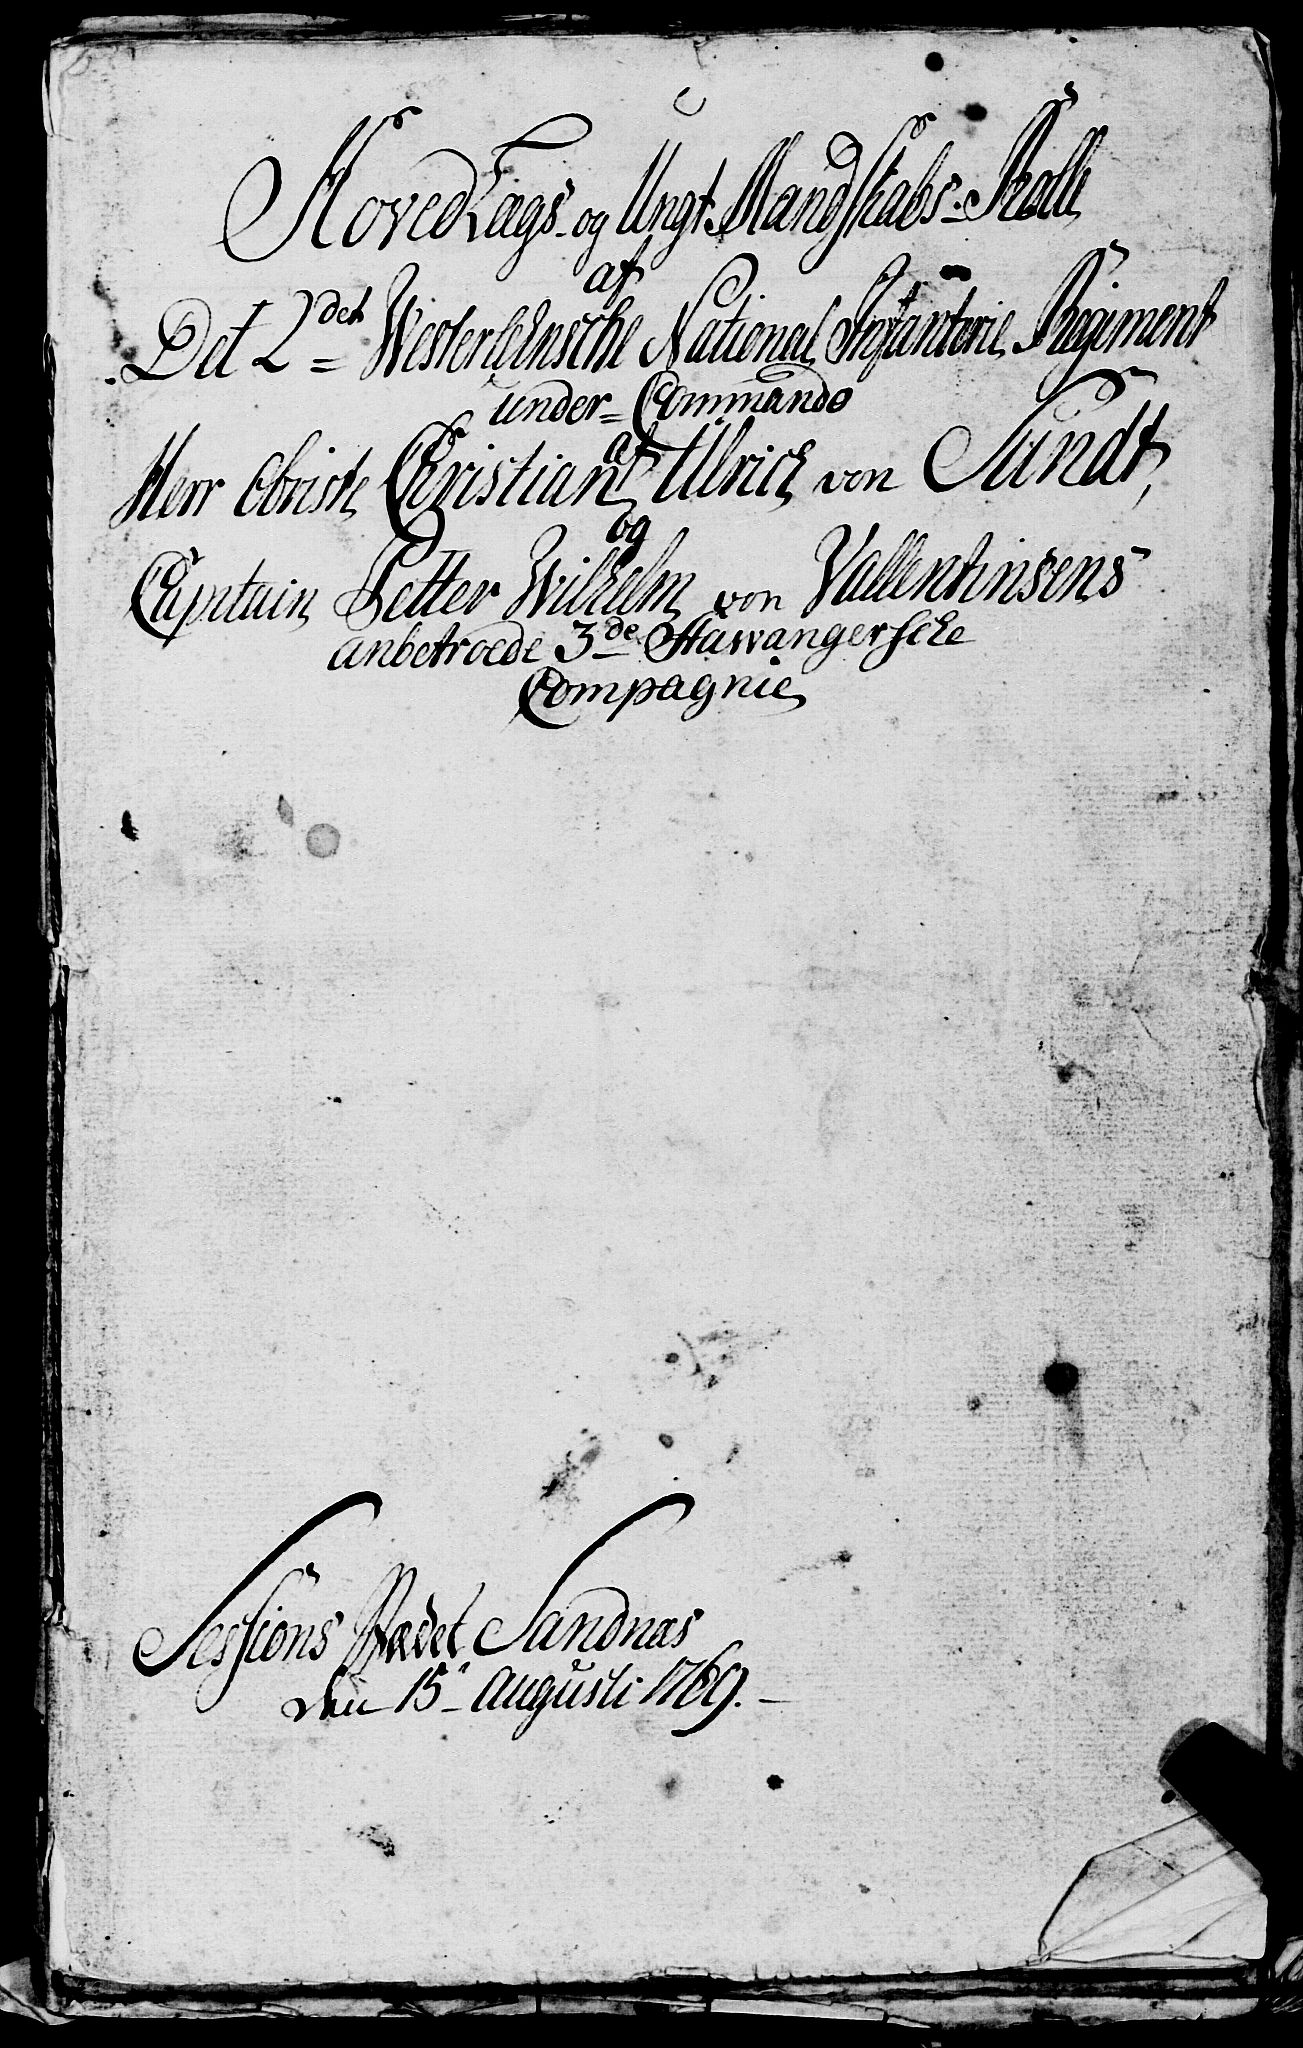 HovedLægs- og Ungt Mandskabs-Rolle
af
Det 2det Westerlehnsche National Infanterie Regiment
under Commando
af
Herr Obriste Christian Ulrich von Sundt,
og
Capitain Petter Wilhelm von Vallentinsens
anbetroede 3de Stawangersche
Compagnie
Sessions Stædet Sandnæs
den 15 Augusti 1769.